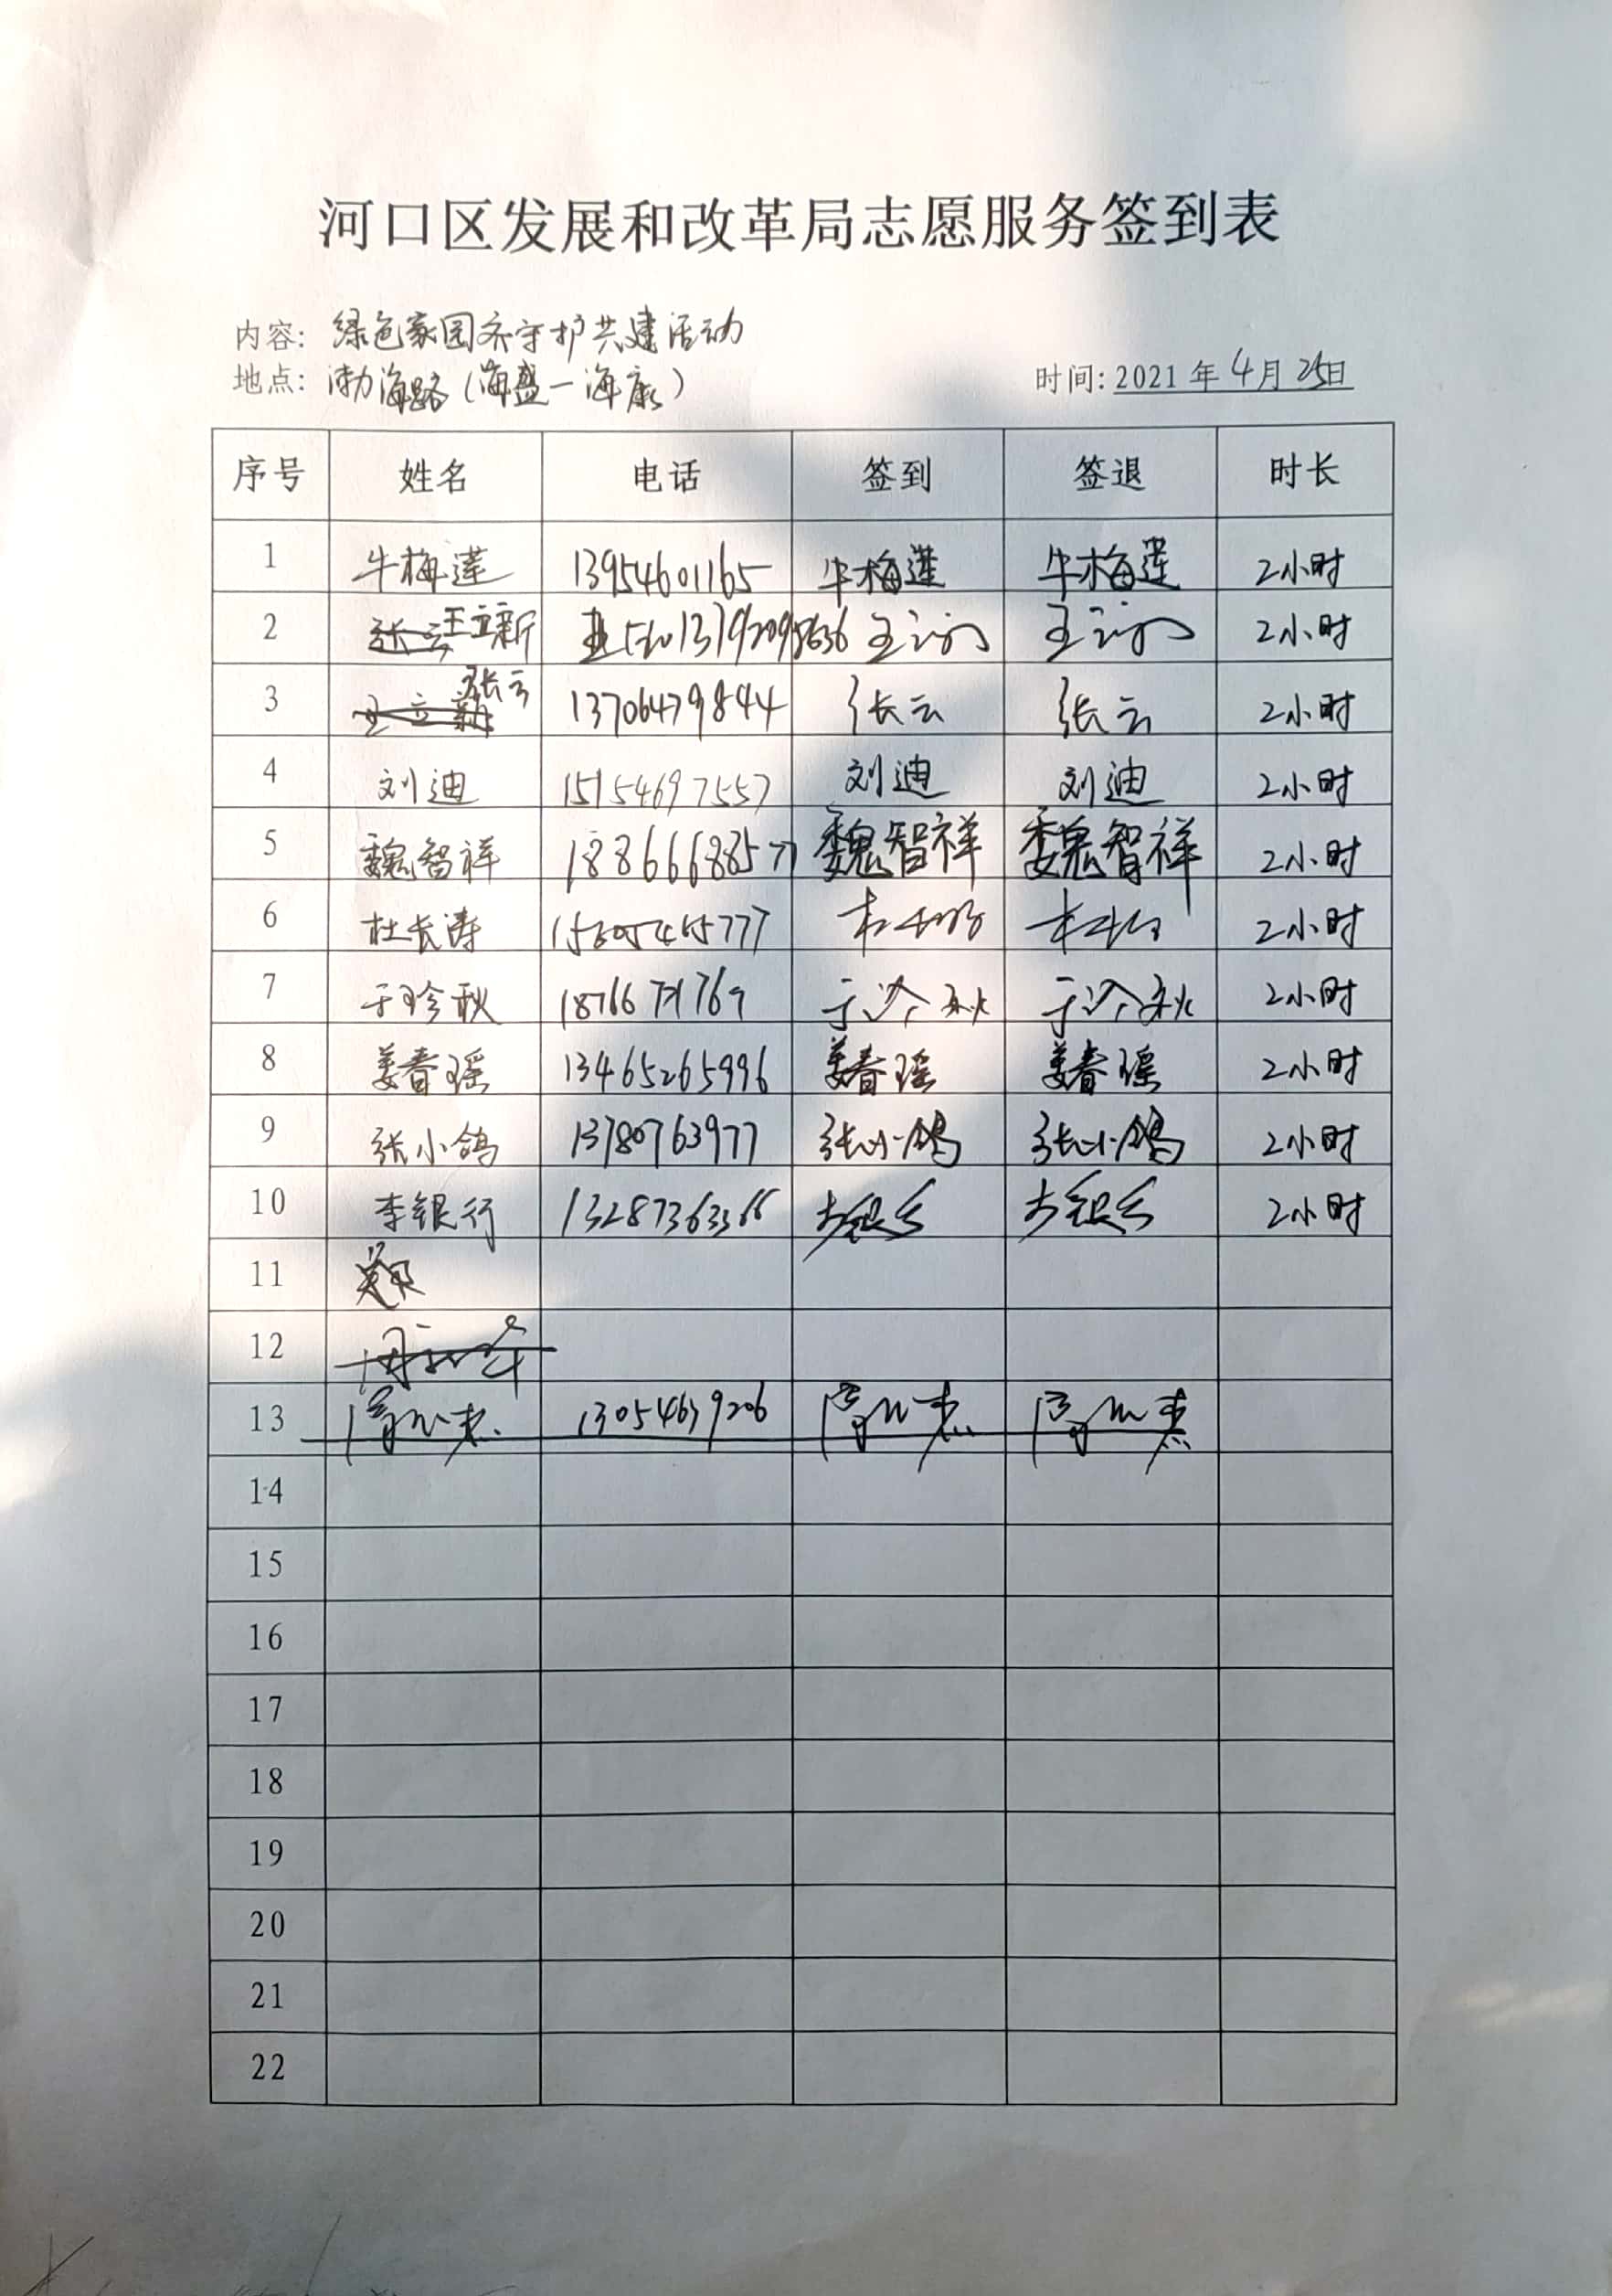 河口区发展和改革局志愿服务签到表
内容: 绿色家园齐守护共建活动
地点: 渤海路(海盛一海康) 时间: 2021年4月25日
序号 姓名 电话 签到 签退 时长
1 牛梅莲 13954601165 牛梅莲 牛梅莲 2小时
2 张云 王立新 2小时
3 王立新 张云 13706479844 张云 张云 2小时
4 刘迪 15154697557 刘迪 刘迪 2小时
5 魏智祥 魏智祥 魏智祥 2小时
6 杜长涛 2小时
7 于珍秋 于珍秋 于珍秋 2小时
8 姜春瑶 13465265996 姜春瑶 姜春瑶 2小时
9 张小鸽 13780763977 张小鸽 张小鸽 2小时
10 李银行 李银行 李银行 2小时
11
12
13
14
15
16
17
18
19
20
21
22